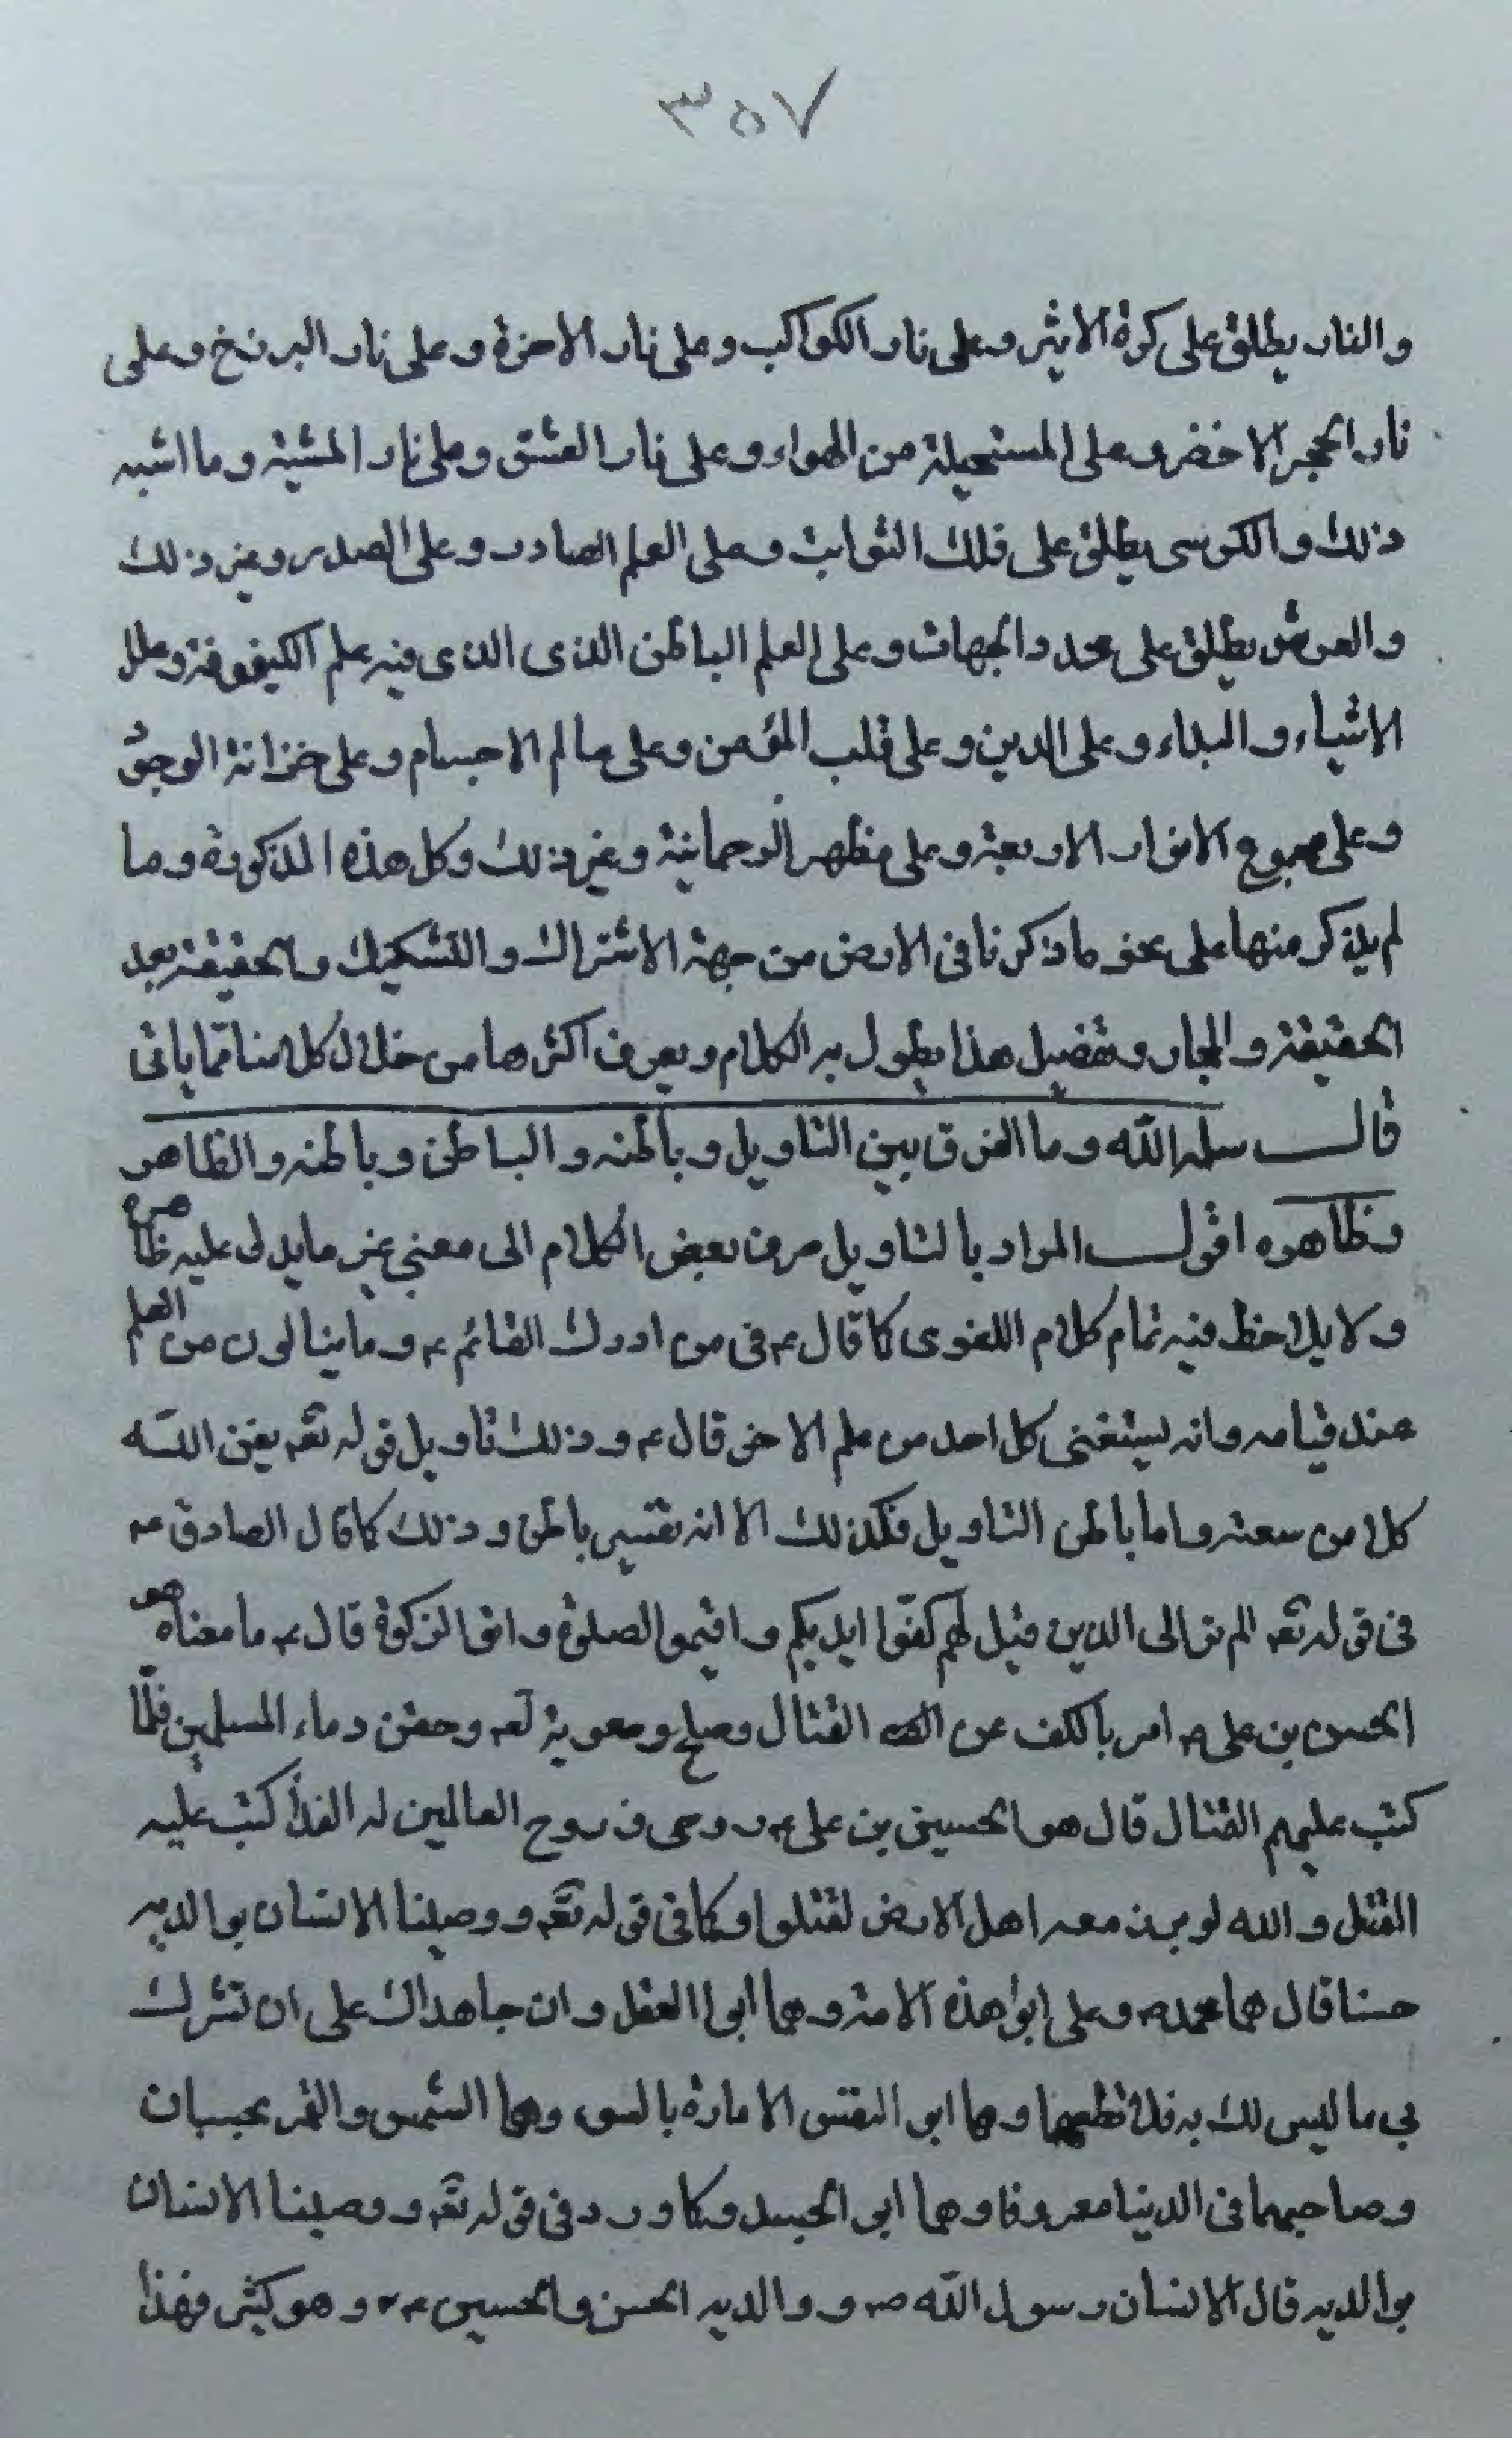 ٣٥٧
والنار يطلق على كرة الاثير وعلى نار الكواكب وعلى نار الاخرة وعلى نار البرزخ وعلى
نار الحجر الاخضر وعلى المستحيلة من الهواء وعلى نار العشق وعلى نار المشية وما اشبه
ذلك والكرسى يطلق على فلك الثوابت وعلى العلم الصادر وعلى الصدر وغير ذلك
والعرش يطلق على محدد الجهات وعلى العلم الباطن الذى الذى فيه علم الكيفوفة وعلل
الاشياء والبداء وعلى الدين وعلى قلب المؤمن وعلى عالم الاجسام وعلى خزانة الوجود
وعلى مجموع الانوار الاربعة وعلى مظهر الرحمانية وغير ذلك وكل هذه المذكورة وما
لم يذكر منها على نحو ما ذكرنا فى الارض من جهة الاشتراك والتشكيك والحقيقة بعد
الحقيقة والمجاز وتفصيل هذا يطول به الكلام ويعرف اكثرها من خلال كلامنا مما ياتى
قال سلمه الله وما الفرق بين التاويل وباطنه والباطن وباطنه والظاهر
وظاهره اقول المراد بالتاويل صرف بعض الكلام الى معنى غير ما يدل عليه ظاهره
ولا يلاحظ فيه تمام كلام اللغوى كما قال ع فى من ادرك القائم ع وما ينالون من العلم
عند قيامه وانه يستغنى كل احد من علم الاخر قال ع وذلك تاويل قوله تعه يغن الله
كلا من سعته واما باطن التاويل فكذلك الا انه تفسير باطن وذلك كما قال الصادق ع
فى قوله تعه الم تر الى الذين قيل لهم كفوا ايديكم واقيموا الصلوة واتوا الزكوة قال ع ما معناه هو
الحسن بن على ع امر بالكف عن القتال وصلح ومعوية لعه وحقن دماء المسلمين فلما
كتب عليهم القتال قال هو الحسين بن على ع روحى وروح العالمين له الفدا كتب عليه
القتل والله لو برز معه اهل الارض لقتلوا وكما فى قوله تعه ووصينا الانسان بوالديه
حسنا قال هما محمد ص وعلى ابوا هذه الامة وهما ابوا العقل وان جاهداك على ان تشرك
بي ما ليس لك به فلا تطعهما وهما ابو النفس الامارة بالسوء وهما الشمس والقمر بحسبان
وصاحبهما فى الدنيا معروفا وهما ابى الجسد وكما ورد فى قوله تعه ووصينا الانسان
بوالديه قال الانسان رسول الله ص ووالديه الحسن والحسين ع وهو كثير فهذا